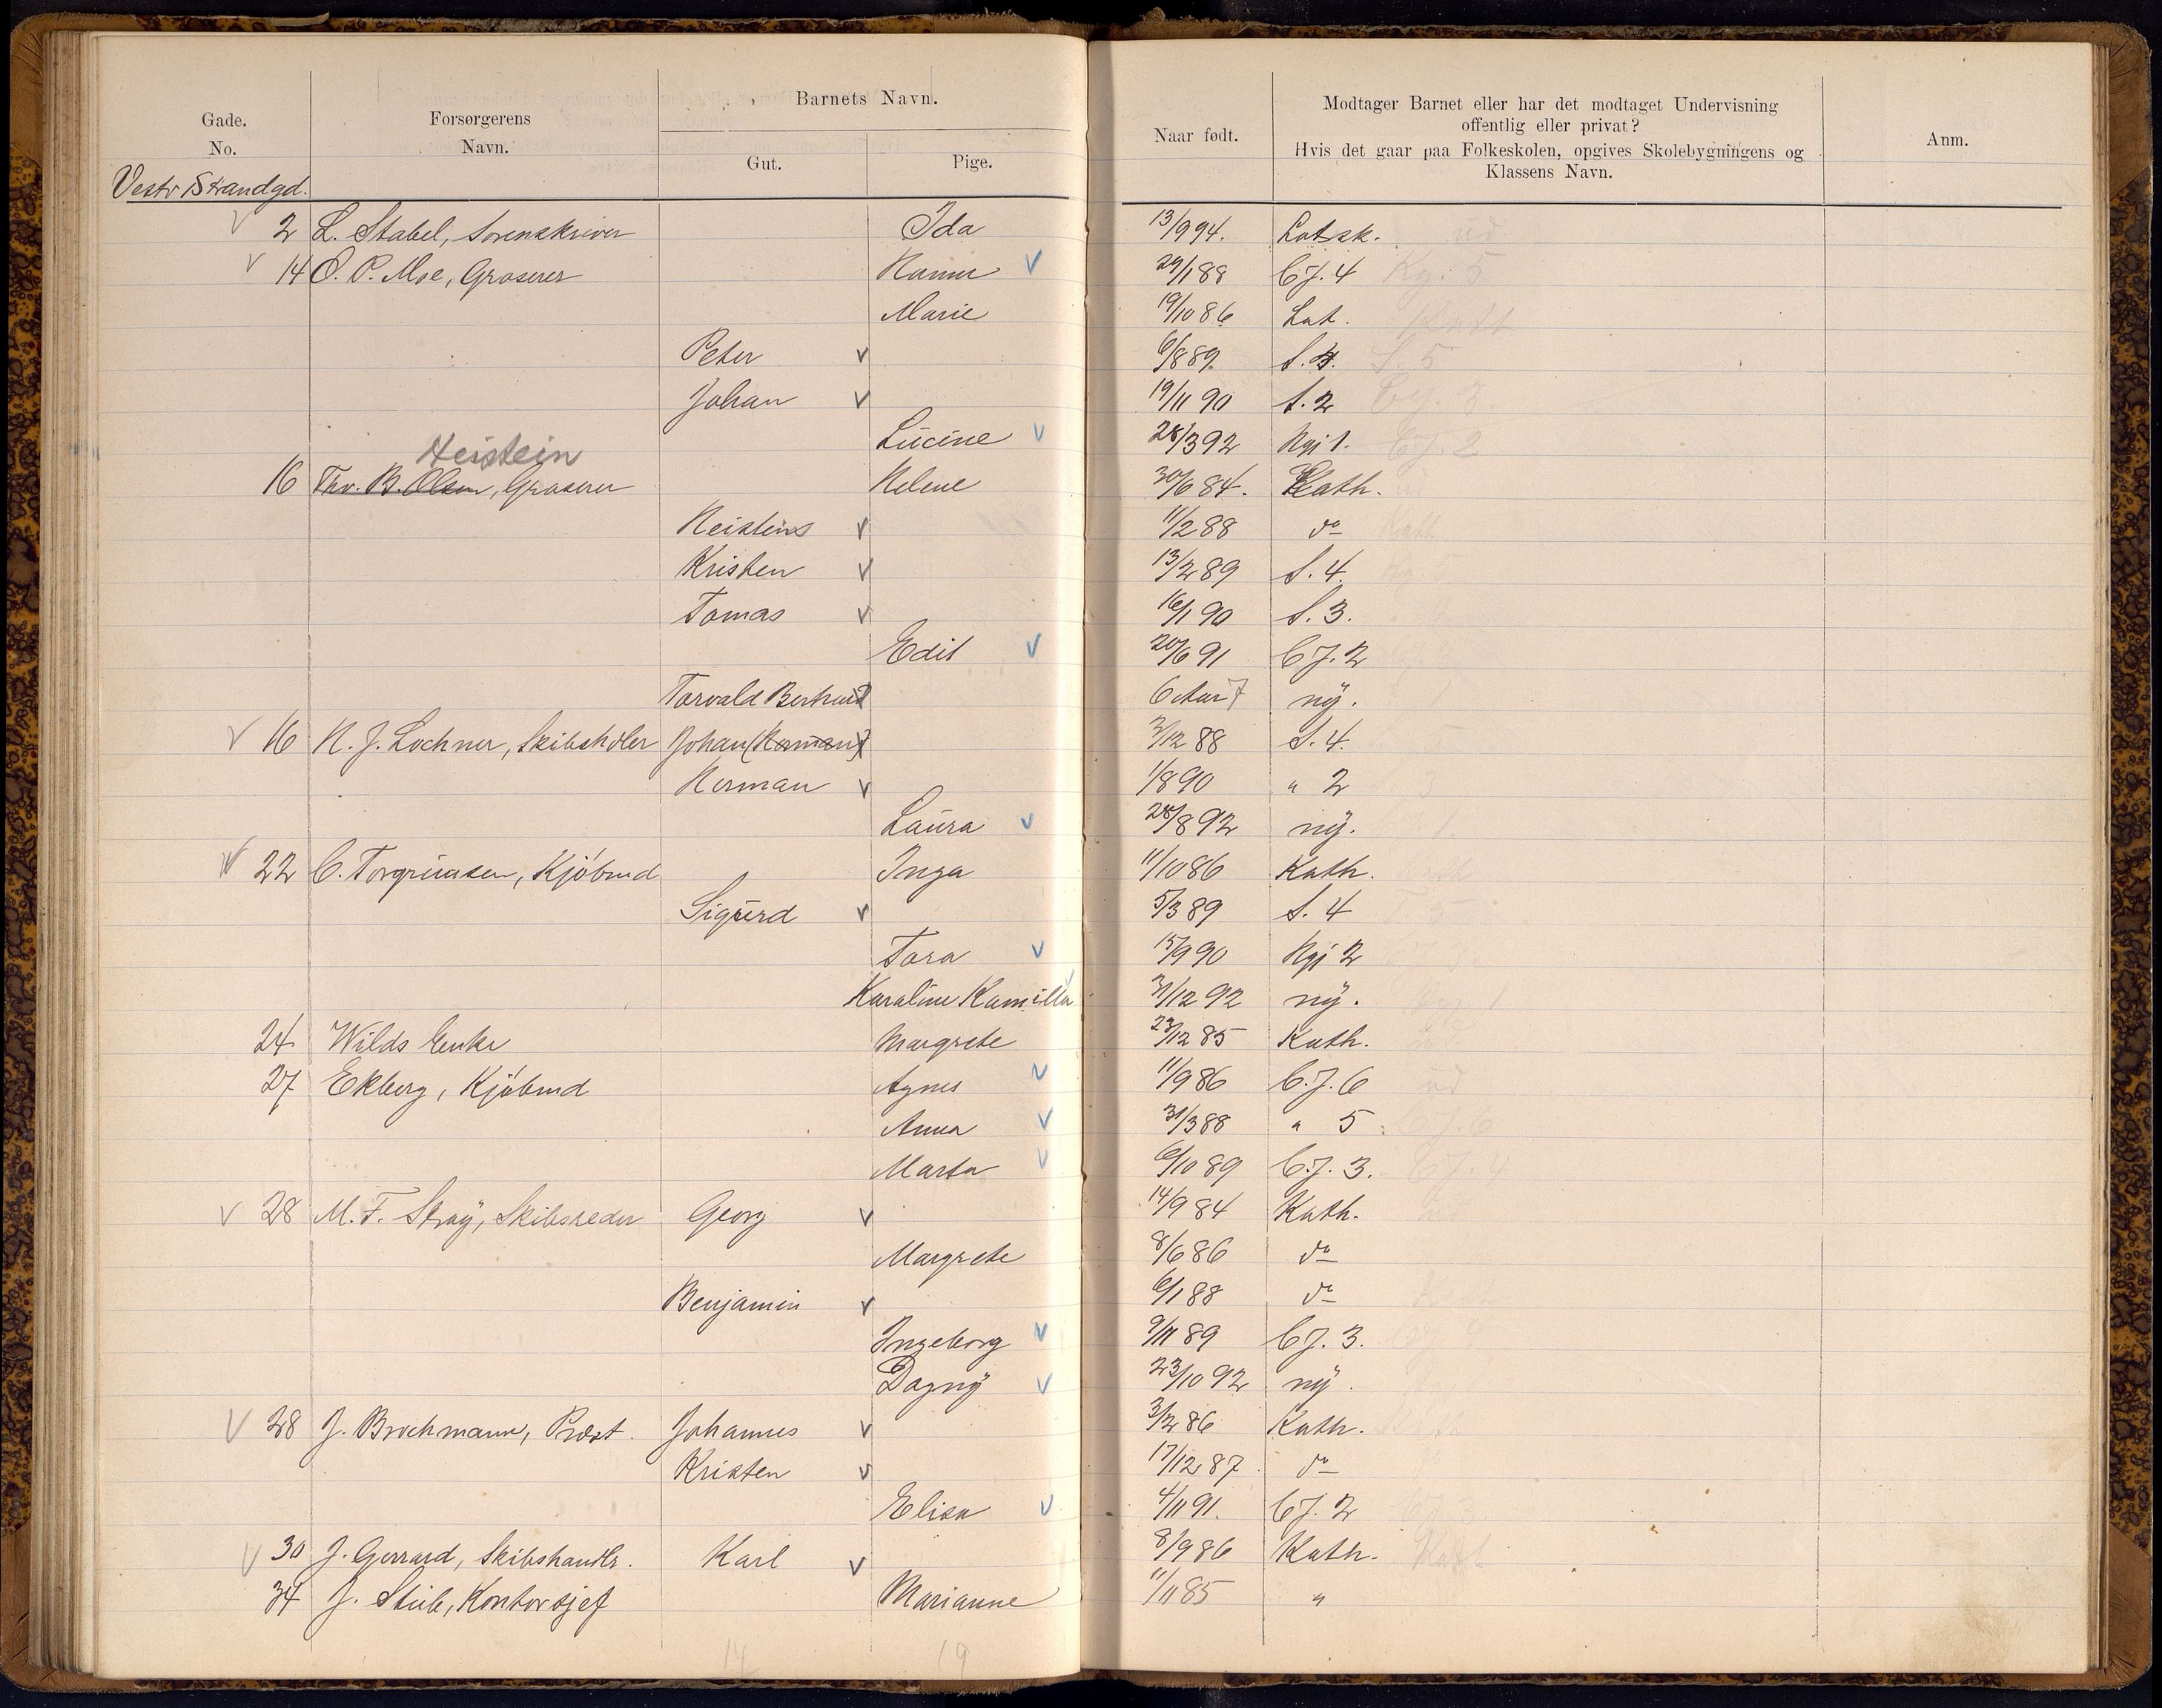 Gade. No. Forsørgerens Navn. Barnets Navn. Gut. Pige. Naar født. Modtager Barnet eller har det modtaget Undervisning offentlig eller privat? Hvis det gaar paa Folkeskolen, opgives Skolebygningens og Klassens Navn. Anm.
Vestr Strandgd.
2 L. Stabel, Sorenskriver Ida 13/9 94. Latsk. ud
14 O. P. Moe, Groserer Hanna 29/1 88 C J. 4
Marie 19/10 86 Lat.
Peter 6/8 89. S. 4. S. 5
Johan 19/11 90 S. 2
Lucine 28/3 92 Ngj 1. C J. 2
Heistein
16 Thv. B. Olsen, Groserer Helene 30/6 84. Kath.
Heistein 11/2 88 do Kath
Kristen 13/2 89 S. 4.
Tomas 16/1 90 S. 3.
Edit 20/6 91 C J. 2
Torvald Bernhard 6 Aar 7 ny.
16 N. J. Lochner, Skibshdler Johan (Herman) 3/12 88 S. 4.
Herman 1/8 90 " 2
Laura 28/8 92 ny.
22 C. Torgrimsen, Kjøbmd Inga 11/10 86 Kath.
Sigurd 5/3 89 S. 4
Tora 15/9 90 Ngj 2
Karaline Kamilla 31/12 92 ny.
24 Wilds Enke Margrete 23/12 85 Kath.
27 Ekberg, Kjøbmd Agnes 11/9 86 C. J. 6 ud
Anna 31/3 88 " 5 C J. 6
Marta 6/10 89 C. J. 3. C J. 4
28 M. F. Stray, Skibsreder Georg 14/9 84 Kath.
Margrete 8/6 86 do
Benjamin 6/1 88 do
Ingeborg 9/11 89 C J. 3.
Dagny 23/10 92 ny.
28 J. Brochmann, Præst. Johannes 3/2 86 Kath.
Kristen 17/12 87 do
Elisa 4/11 91. C J. 2 C J. 3
30 J. Gerrard, Skibshandlr. Karl 8/9 86 Kath. Kath
34 J. Stub, Kontorsjef Marianne 11/11 85 "
14 19